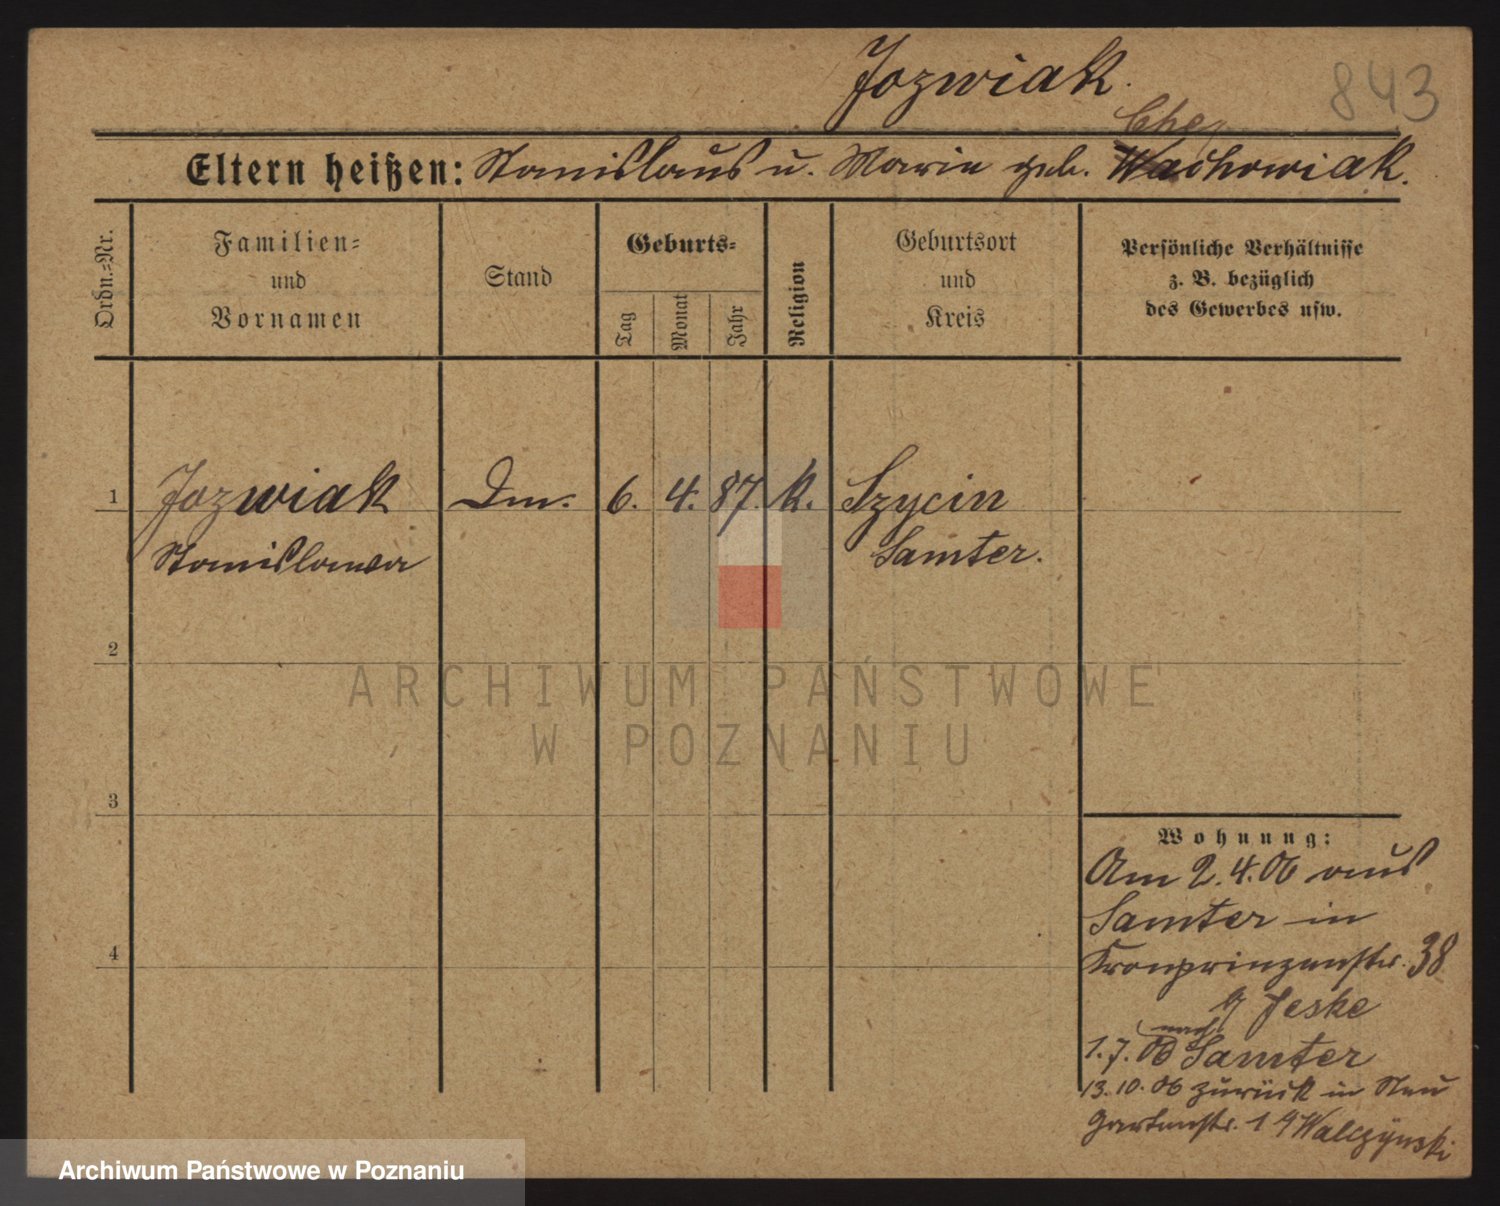 Jozwiak.
843
Che
Eltern heißen: Stanislaus u. Marie geb. Wachowiak.
Ordn.=Nr.
Familien=
und
Vornamen
Stand
Geburts=
Tag
Monat
Jahr
Religion
Geburtsort
und
Kreis
Persönliche Verhältnisse
z. B. bezüglich
des Gewerbes usw.
1
Jozwiak
Stanislawa
Dm.
6.
4.
87.
k.
Szycin
Samter.
2
3
4
Wohnung:
Am 2.4.06 aus
Samter in
Kronprinzenstr. 38
Jeske
nach
1.7.06 Samter
13.10.06 zurück in Neu
Gartenstr. 1 Walczynski
ARCHIWUM PAŃSTWOWE
W POZNANIU
Archiwum Państwowe w Poznaniu